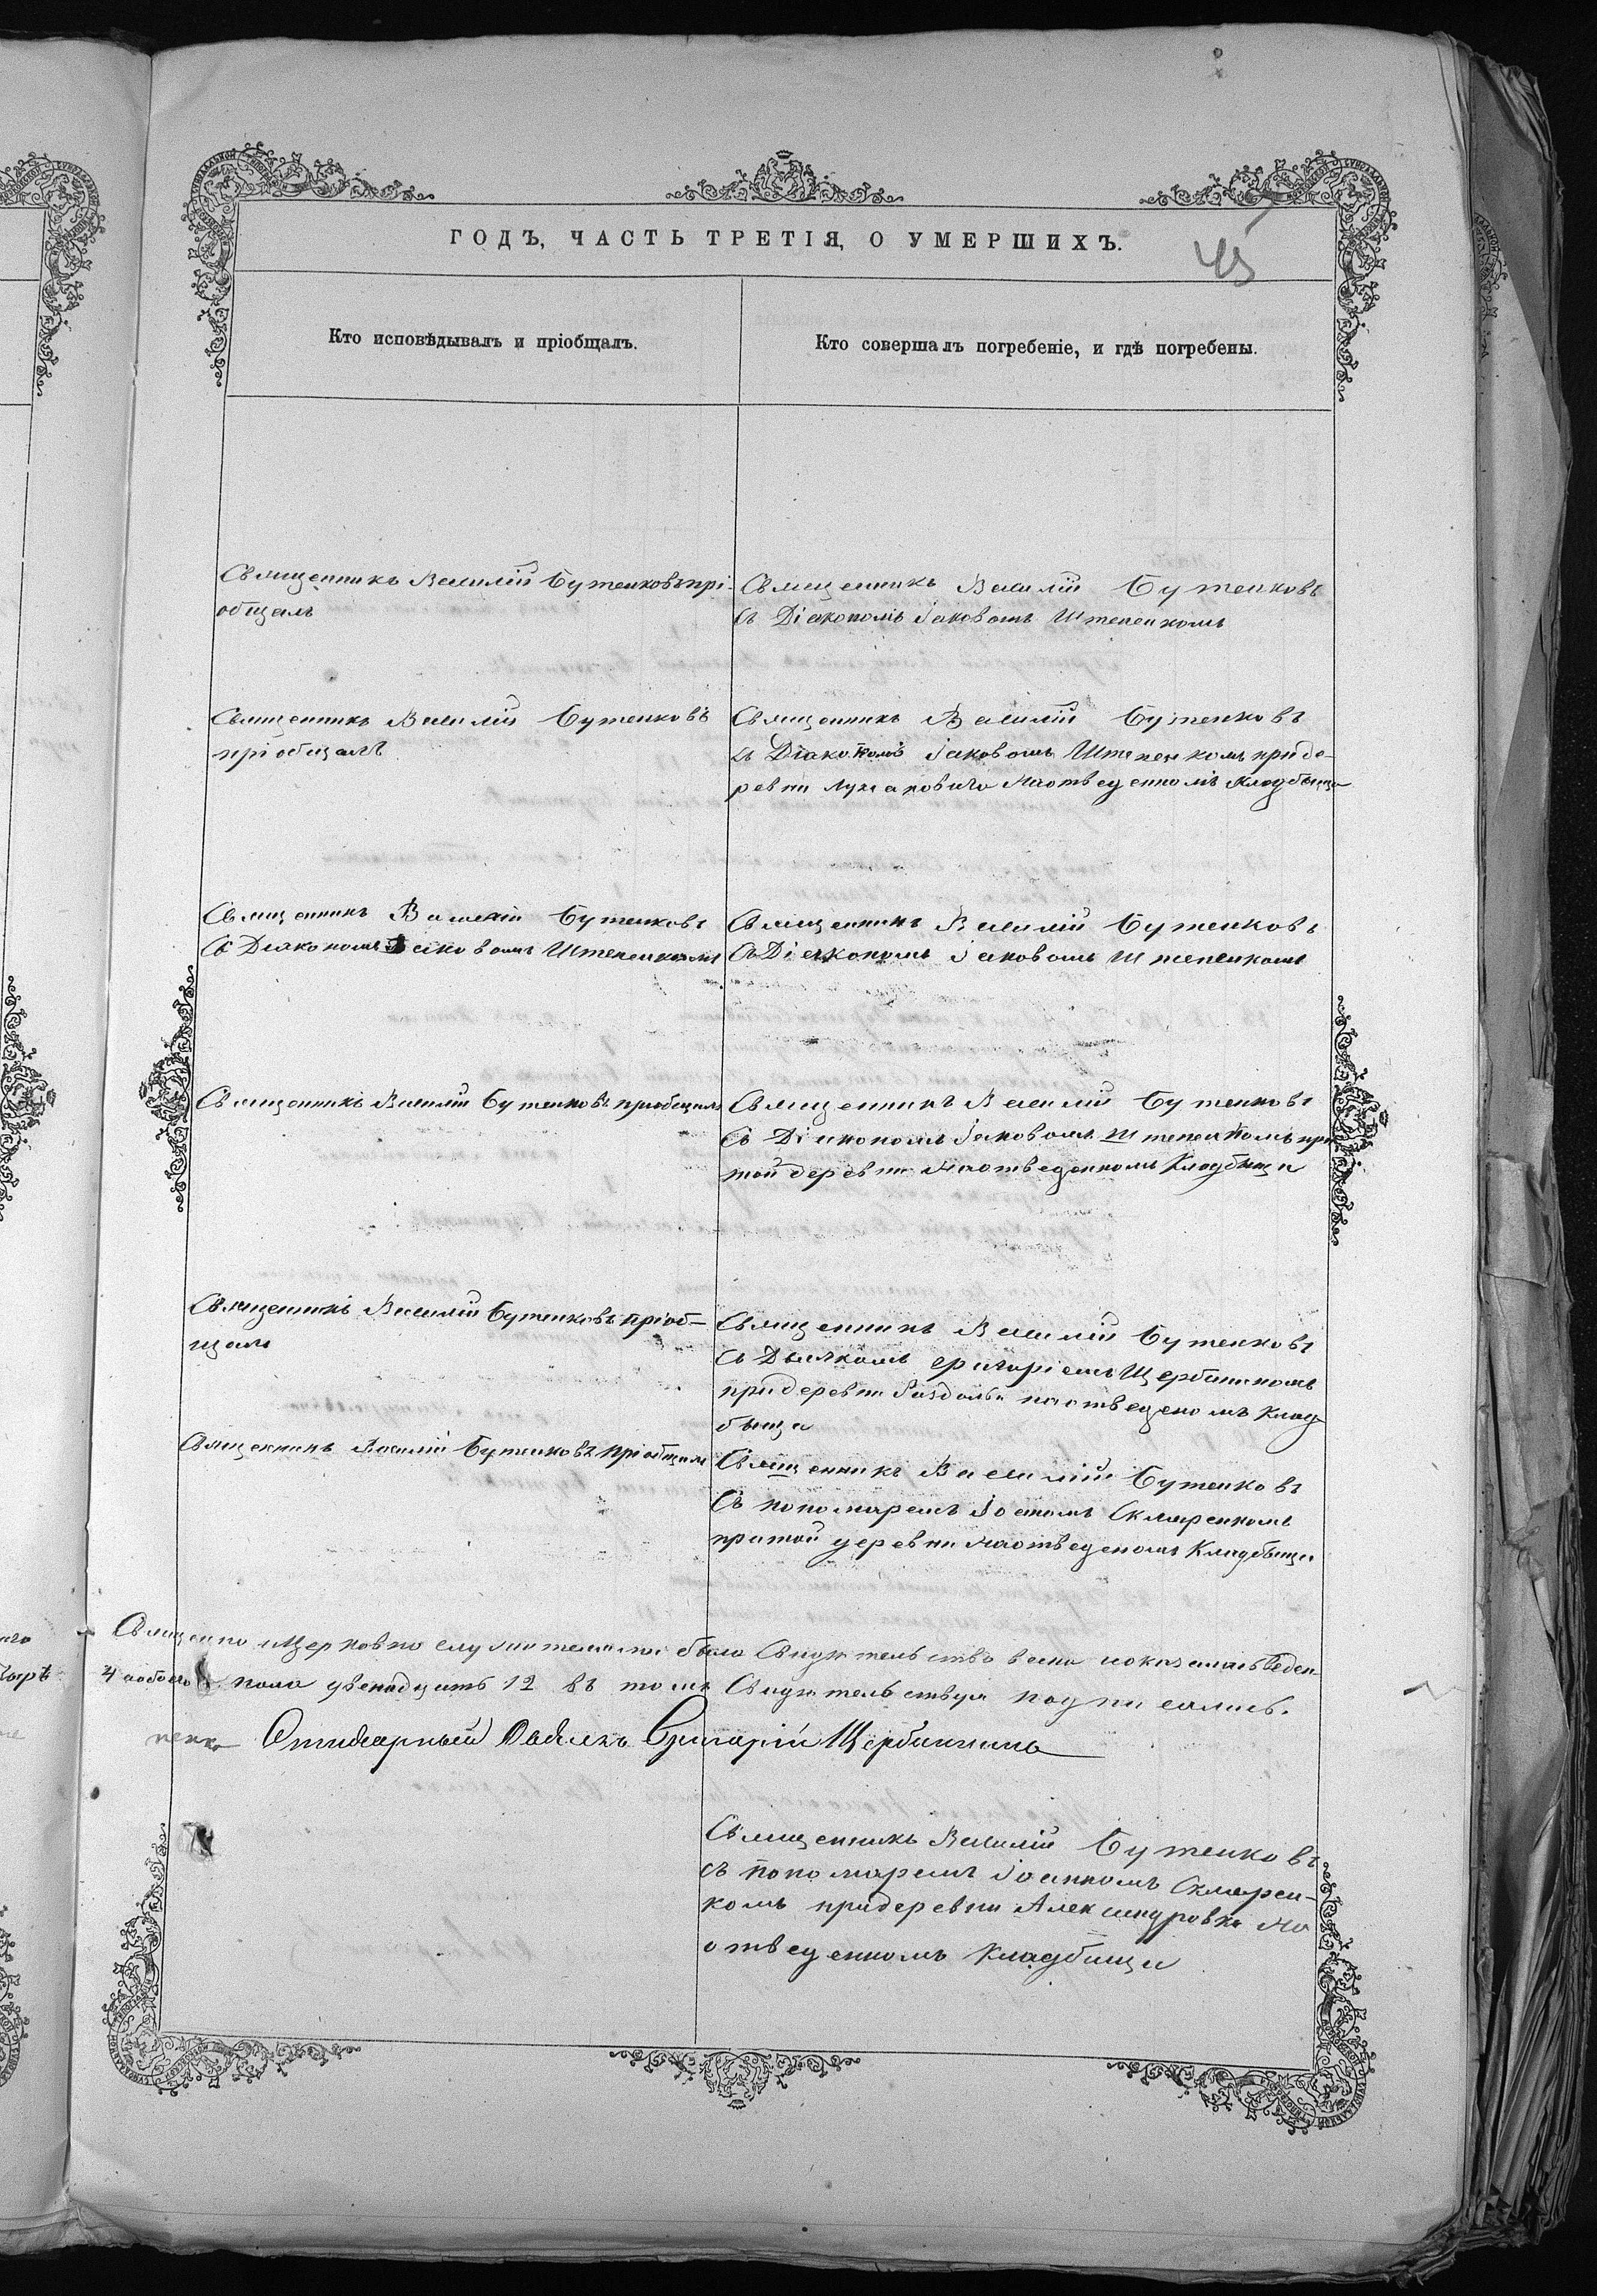 ГОДЪ, ЧАСТЬ ТРЕТІЯ, О УМЕРШИХЪ.
45
Кто исповѣдывалъ и пріобщалъ.
Кто совершалъ погребеніе, и гдѣ погребены.
Священникъ Василій Бутенковъ прі-
общалъ
Священникъ Василій Бутенковъ
съ Діакономъ Іаковомъ Штепенкомъ
Священникъ Василій Бутенковъ
пріобщалъ
Священникъ Василій Бутенковъ
съ Діакономъ Іаковомъ Штепенкомъ при де-
ревни наотведенномъ Кладбыща
Священникъ Василій Бутенковъ
съ Діакономъ Іаковомъ Штепенкомъ
Священникъ Василій Бутенковъ
съ Діякономъ Іаковомъ Штепенкомъ
Священникъ Василій Бутенковъ пріобщалъ
Священникъ Василій Бутенковъ
съ Діякономъ Іаковомъ Штепенкомъ при
той деревни наотведенномъ Кладбища
Священникъ Василій Бутенковъ пріоб-
щалъ
Священникъ Василій Бутенковъ
съ Дьячкомъ Григоріемъ Щербининомъ
при деревни Раздолья наотведеномъ Клад-
быща
Священникъ Василій Бутенковъ пріобщалъ
Священникъ Василій Бутенковъ
съ пономаремъ Іоаномъ Скляренкомъ
притой деревни наотведеномъ Кладбыща
Священно церковно служителями было
пола двенадцать 12 въ томъ Свидетельствуя подписались.
Дьячекъ Григорій Щербининъ
Священникъ Василій Бутенковъ
съ пономаремъ Іоанномъ Скларен-
комъ придеревни Александровка на
отведенномъ Кладбища